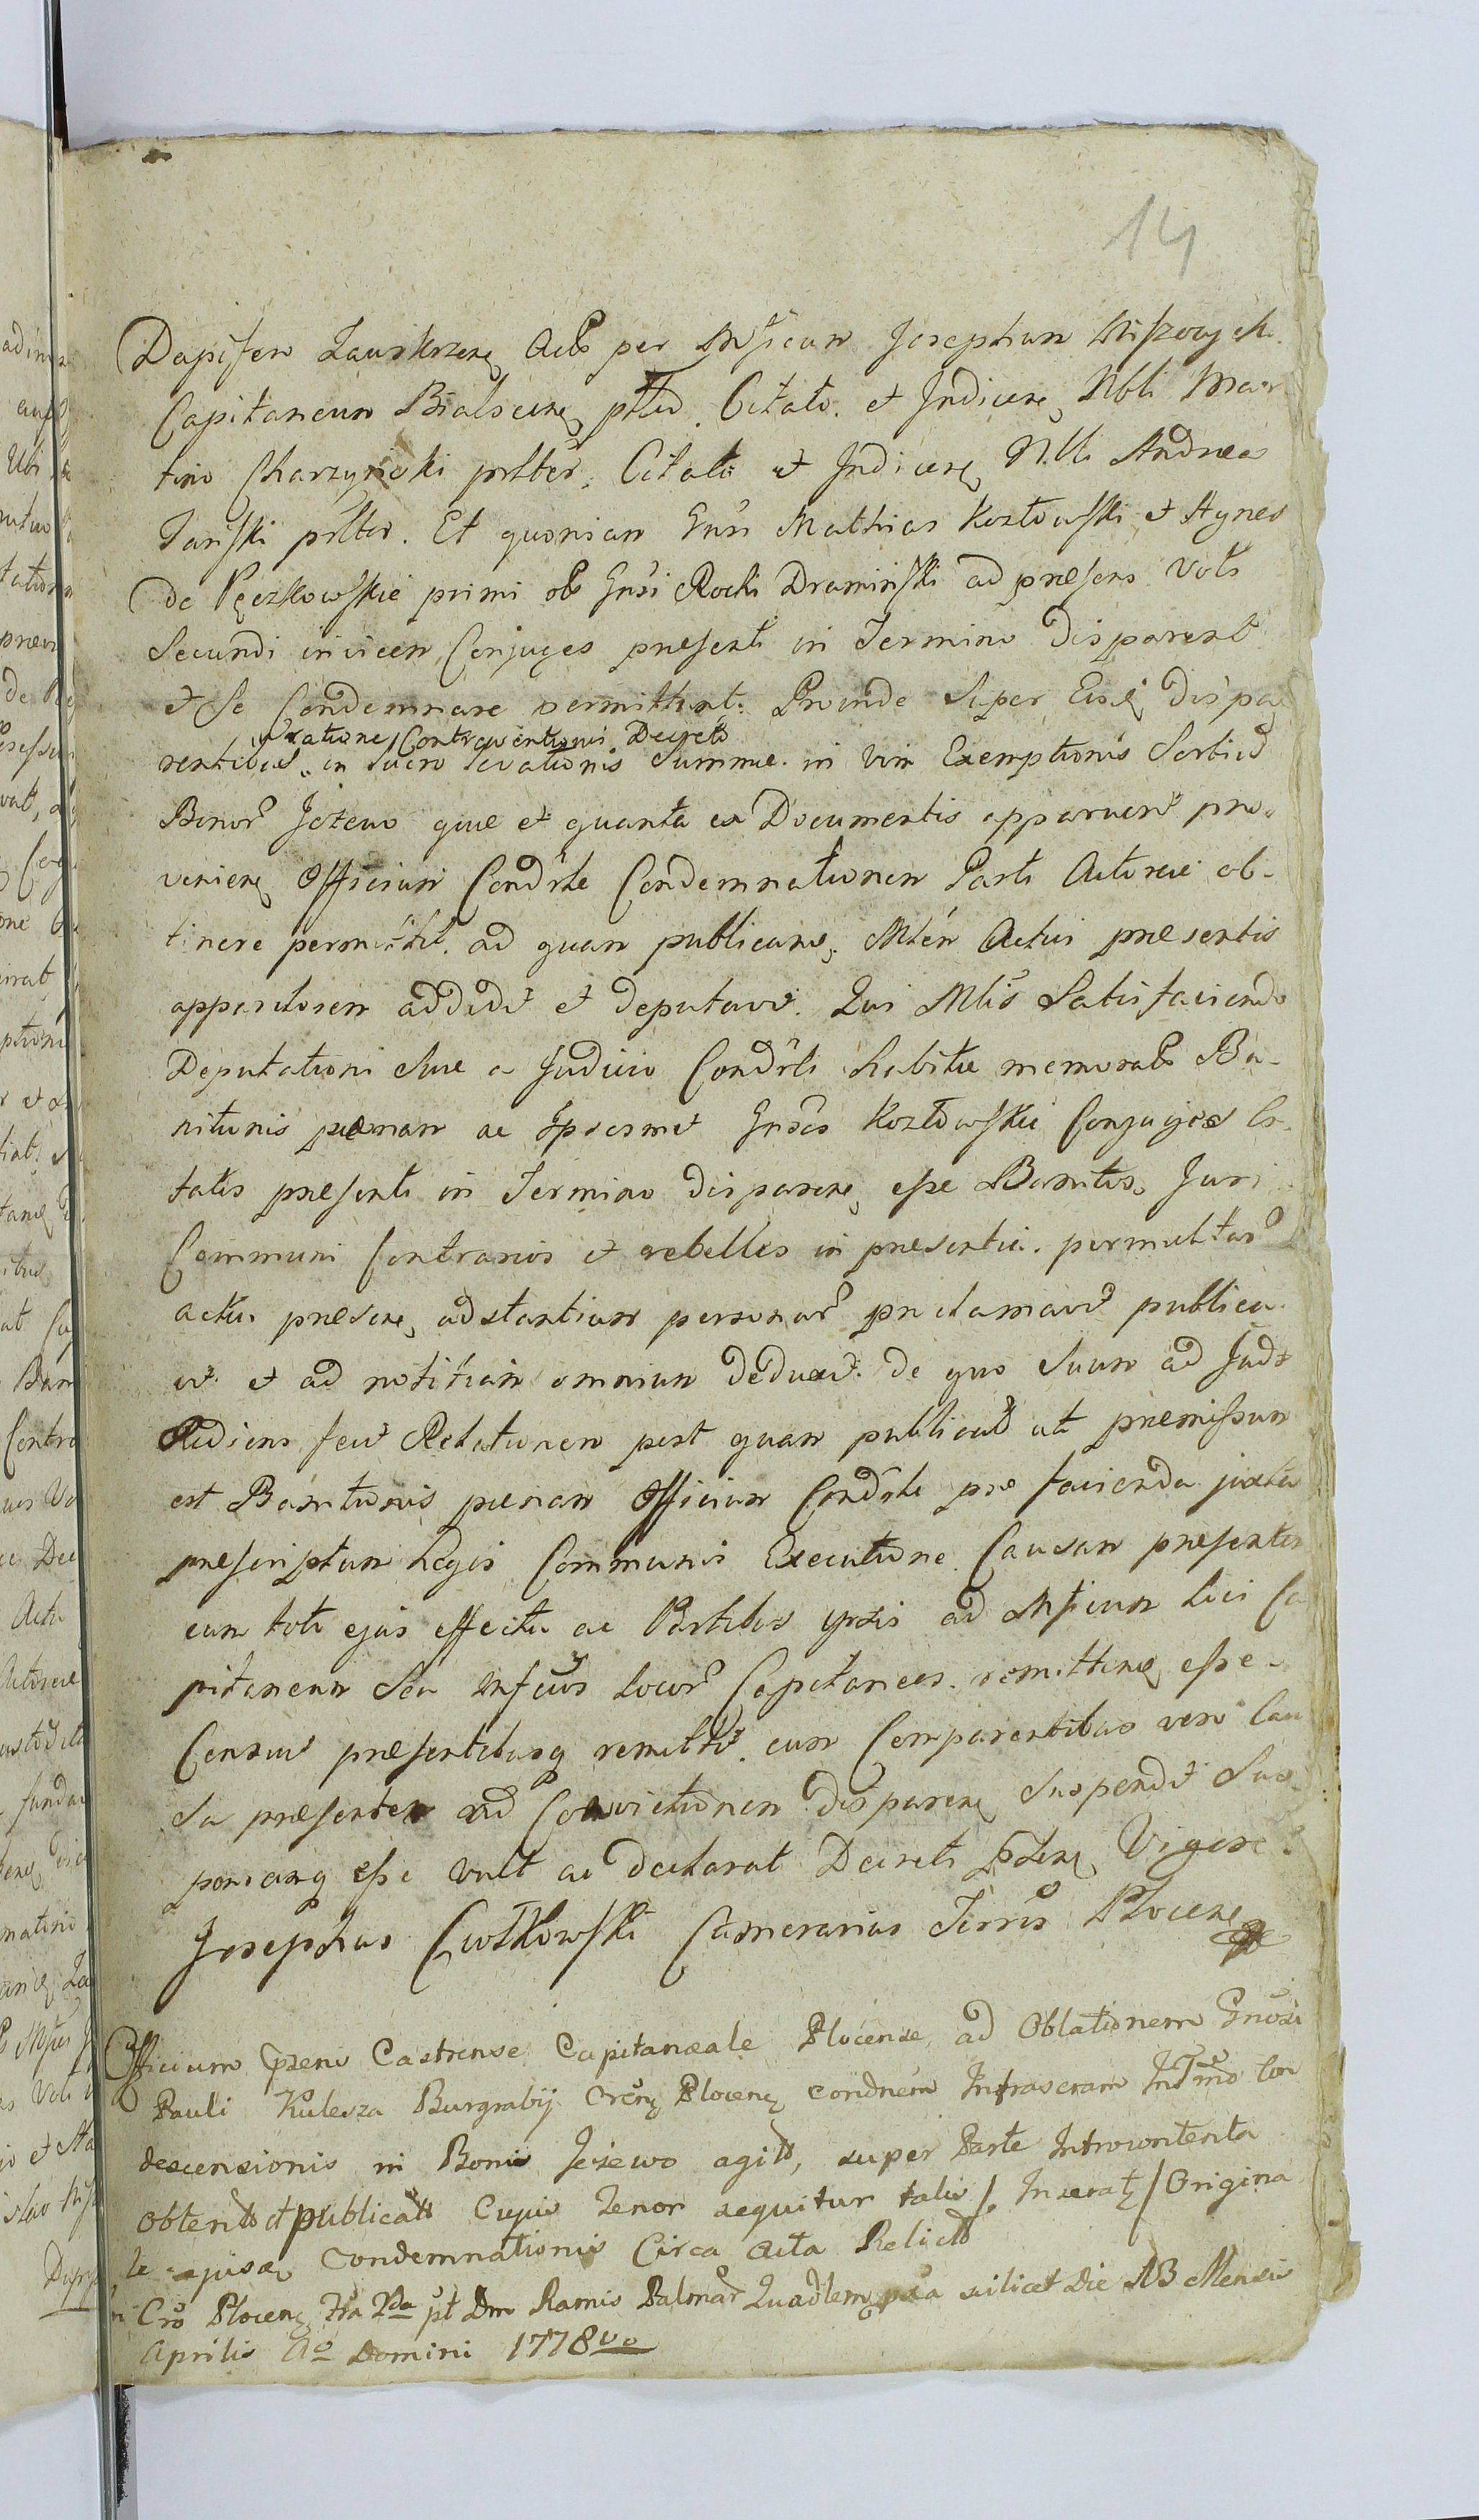 14
Dapiferū Zawskrzen̨ Actō per Mficum Josephum Niszczyck.
Capitaneum Bialscen̨ pltd. Citato. et Judicen̨ Nbli Mar-
tino Charzyński prltēr. Citato et Judicen̨ Nbli Andreas
Janiski prltēr. Et quoniam Gnsi Mathias Kozłowſki et Agnes
de Pęczkowſkie primi ob Gnsi Rochi Draminſki ad præſens Voti
Secundi invicem Conjuges præſenti in Termino disparent
et Se Condemnare permittunt. Proinde Super Eisd̨ dispa
ratione Contraventionis Decreti
rentibus in lucro levationis Summæ in vim Exemptionis Sortis
Bonor̃ Jeżewo quæ et quanta ex Documentis apparuerit pro-
venien̨ Officium Condr̃le Condemnationem Parti Actoreæ ob-
tinere permisit. ad quam publican̨. Mlem Actui præsentis
apparitorem addidit et deputavit. Qui Mlis Satisfaciendo
Deputationi Suæ a Judicio Condr̃li habitæ memoratō Ba-
nitionis pænam ac Ipsosmet Gnsos Kozłowſkie Conjuges Ci-
tatos præſenti in Termino disparen̨ eſse Banitos, Juri
Communi Contrarios et rebelles in præsentia permultar̃
actui præsen̨ adstantium personar̃ proclamavit publica-
vit et ad notitiam omnium deduxit. de quo Suam ad Judm
Rediens fecit Relationem post quam publicatō ut præmiſsum
est Banitionis pænam Officium Condr̃le pro facienda juxta
præſcriptum Legis Communis Executione Causam præſentem
cum toto ejus effectu ac Partibus ipsis ad Mficum loci Ca
pitaneum Seu Mficos locor̃ Capitaneos remitten̨ eſse
Censuit præſentibusq̨ remittit. cum Comparentibus vero Cau
sa præſenter ad Convictionem disparen̨ Suspendit Sus-
pensamq̨ eſse vult ac declarat Decreti p̃sen̨ Vigore.
Josephus Ciółkowſki Camerarius Terris Plocen̨
Officium p̃sens Castrense Capitaneale Plocense ad Oblationem Gnosi
Pauli Kulesza Burgrabij Cren̨ Plocen̨ condnem Infrascram In Tm̃o Con
descensionis in Bonis Jeżewo agitō, super Parte Introcontenta
obtentō et publicatō Cujus Tenor sequitur talis /. Inserat̨ / Origina
le ejusd̨ Condemnationis Circa Acta Relictō
Cro Plocen̨ Fra 2da pt Dm Ramis Palmar̃ Quadlem pxa scilicet Die 13 Mensis
Aprilis Ao Domini 1778vo